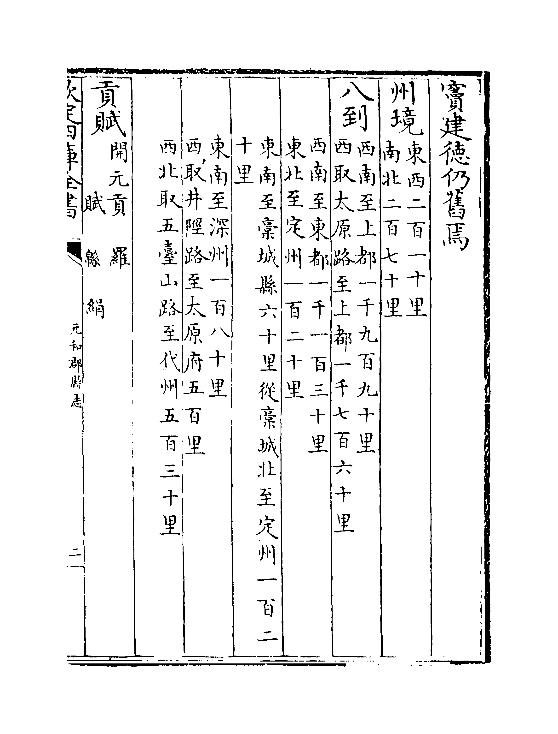 竇建德仍舊焉
州境東西二百一十里
南北二百七十里
八到西南至上都一千九百九十里
西取太原路至上都一千七百六十里
西南至東都一千一百三十里
東北至定州一百二十里
東南至藁城縣六十里從藁城北至定州一百二
十里
東南至深州一百八十里
西取井陘路至太原府五百里
西北取五臺山路至代州五百三十里
貢賦開元貢 羅
賦 緜 絹
欽定四庫全書
元和郡縣志
二